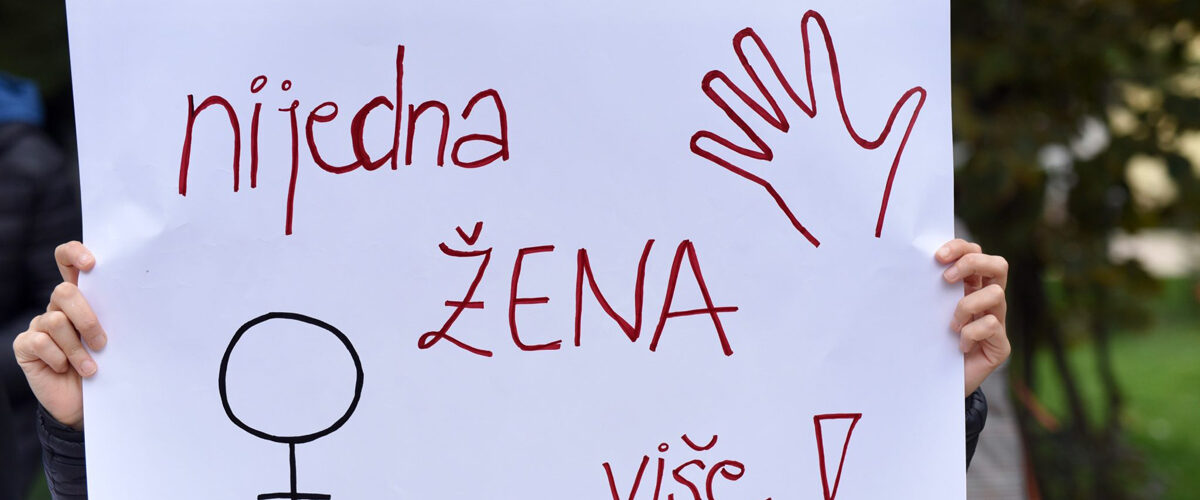 nijedna
ŽENA
više!